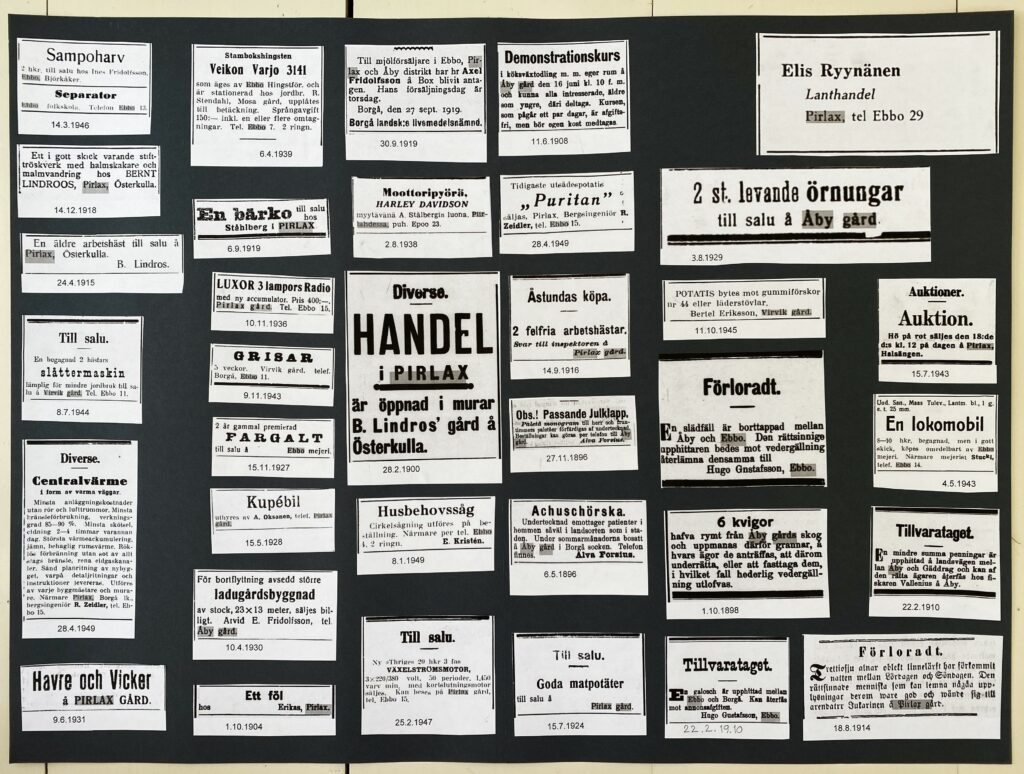 Sampoharv
2 hkr. till salu hos Ines Fridolfsson,
Ebbo, Björkåker.
Separator
Ebbo folkskola. Telefon Ebbo 13.
14.3.1946
Ett i gott skick varande stift-
tröskverk med halmskakare och
malmvandring hos BERNT
LINDROOS, Pirlax, Österkulla.
14.12.1918
En äldre arbetshäst till salu å
Pirlax, Österkulla.
B. Lindros.
24.4.1915
Till salu.
En begagnad 2 hästars
slåttermaskin
lämplig för mindre jordbruk till sa-
lu å Virvik gård. Tel. Ebbo 11.
8.7.1944
Diverse.
Centralvärme
i form av varma väggar.
Minsta anläggningskostnader
utan rör och luftttrummor. Minsta
bränsleförbrukning, verknings-
grad 85—90 %. Minsta skötsel,
eldning 2—4 timmar varannan
dag. Största värmeackumulering,
jämn, behaglig rumsvärme. Rök-
lös förbränning utan rost av allt
slags bränsle, rena eldgaskana-
ler. Sänd planritning av nybyg-
get, varpå detaljritningar och
instruktioner levereras. Utföres
av varje byggmästare och mura-
re. Närmare Pirlax, Borgå lk.,
bergsingeniör R. Zeidler, tel. Eb-
bo 15.
28.4.1949
Havre och Vicker
å PIRLAX GÅRD.
9.6.1931
Stambokshingsten
Veikon Varjo 3141
som äges av Ebbo Hingstför. och
är stationerad hos jordbr. R.
Stendahl, Mosa gård, upplåtes
till betäckning. Språngavgift
150:— inkl. en eller flere omtag-
ningar. Tel. Ebbo 7. 2 ringn.
6.4.1939
En bårko till salu
hos
Ståhlberg i PIRLAX
6.9.1919
LUXOR 3 lampors Radio
med ny accumulator. Pris 400:—,
Pirlax gård. Tel. Ebbo 15.
10.11.1936
GRISAR
5 veckor. Virvik gård, telef.
Borgå, Ebbo 11.
9.11.1943
2 år gammal premierad
FARGALT
till salu å Ebbo mejeri.
15.11.1927
Kupébil
uthyres av A. Oksanen, telef. Pirlax
gård.
15.5.1928
För bortflyttning avsedd större
ladugårdsbyggnad
av stock, 23×13 meter, säljes bil-
ligt. Arvid E. Fridolfsson, tel.
Åby gård.
10.4.1930
Ett föl
hos Erikas, Pirlax.
1.10.1904
Till mjölförsäljare i Ebbo, Pir-
lax och Åby distrikt har hr Axel
Fridolfsson å Box blivit anta-
gen. Hans försäljningsdag är
torsdag.
Borgå, den 27 sept. 1919.
Borgå landsk:s livsmedelsnämnd.
30.9.1919
Moottoripyörä,
HARLEY DAVIDSON
myytävänä A. Stålbergin luona. Pirt-
lahdessa, puh. Epoo 23.
2.8.1938
Diverse.
HANDEL
i PIRLAX
är öppnad i murar
B. Lindros' gård å
Österkulla.
28.2.1900
Husbehovssåg
Cirkelsågning utföres på be-
ställning. Närmare per tel. Ebbo
4, 2 ringn. E. Kristén.
8.1.1949
Till salu.
Ny »Thriges» 20 hkr 3 fas
VÄXELSTRÖMSMOTOR,
3×220/380 volt, 50 perioder, 1,450
varv min. med kortslutningsmotor
säljes. Kan beses på Pirlax gård,
tel. Ebbo 15.
25.2.1947
Demonstrationskurs
i köksväxtodling m. m. eger rum å
Åby gård den 16 juni kl. 10 f. m.
och kunna alla intresserade, äldre
som yngre, däri deltaga. Kursen,
som pågår ett par dagar, är afgifts-
fri, men bör egen kost medtagas
11.6.1908
Tidigaste utsädespotatis
„Puritan"
säljas, Pirlax, Bergsingeniör R.
Zeidler, tel. Ebbo 15.
28.4.1949
Åstundas köpa.
2 felfria arbetshästar.
Svar till inspektoren å
Pirlax gård.
14.9.1916
Obs.! Passande Julklapp.
Paletå monogram till herr och
förfärdigas af undertecknad.
Beställningar kan göras per telefon till Åby
gård. Alva Forsius.
27.11.1896
Achuschörska.
Undertecknad emottager patienter i
hemmen såväl i landsorten som i sta-
den. Under sommarmånaderna bosatt
å Åby gård i Borgå socken. Telefon
finnes. Alva Forsius.
6.5.1896
Till salu.
Goda matpotäter
till salu å
Pirlax gård.
15.7.1924
Elis Ryynänen
Lanthandel
Pirlax, tel Ebbo 29
2 st. levande örnungar
till salu å Åby gård.
3.8.1929
POTATIS bytes mot gummiförskor
nr 44 eller läderstövlar.
Bertel Eriksson, Virvik gård.
11.10.1945
Förloradt.
En slädfäll är borttappad mellan
Åby och Ebbo. Den rättsinnige
upphittaren bedes mot vedergällning
återlämna densamma till
Hugo Gnstafsson, Ebbo.
6 kvigor
hafva rymt från Åby gårds skog
och uppmanas därför grannar, å
hvars ägor de anträffas, att därom
underrätta, eller att fasttaga dem,
i hvilket fall hederlig vedergäll-
ning utlofvas.
1.10.1898
Tillvarataget.
En galosch är upphittad mellan
Ebbo och Borgå. Kan återfås
mot annonsafgiften.
Hugo Gustafsson, Ebbo.
22.2.1910
Auktioner.
Auktion.
Hö på rot säljes den 18:de
d:s kl. 12 på dagen å Pirlax,
Halsängen.
15.7.1943
En lokomobil
8—40 hkr, begagnad, men i gott
skick, köpes omedelbart av Ebbo
mejeri. Närmare mejerist
telef. Ebbo 14.
4.5.1943
Tillvarataget.
En mindre summa penningar är
upphittad å landsvägen mel-
lan Åby och Gäddrag och kan af
den rätta ägaren återfås hos fi-
skaren Vallenius å Åby.
22.2.1910
Förloradt.
Trettiosju alnar oblekt linnelärft har förkommit
natten mellan Lördagen och Söndagen. Den
rättsinnade menniska som kan lemna någda upp-
lysningar derom ware god och wände sig till
arendator Jukarinen å Pirlax gård.
18.8.1914